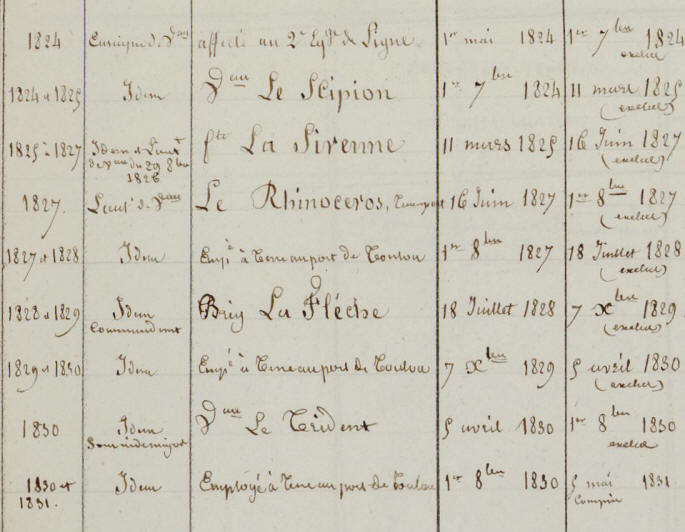 1824 Enseigne de Vau affecté au 2e Eqge de Ligne 1er mai 1824 1er 7bre 1824
exclus
1824 et 1825 Idem Vau Le Scipion 1er 7bre 1824 11 mars 1825
(exclus)
1825 à 1827 Idem et Lieut fte La Sirenne 11 mars 1825 16 Juin 1827
de Vau du 29 8bre (exclus)
1826
1827. Lieut de Vau Le Rhinoceros, 16 Juin 1827 1er 8bre 1827
(exclus)
1827 et 1828 Idem Empé à Terre au port de Toulon 1er 8bre 1827 18 Juillet 1828
(exclus)
1828 et 1829 Idem Brig La Flèche 18 Juillet 1828 7 Xbre 1829
Commandant (exclus)
1829 et 1830 Idem Empé à Terre au port de Toulon 7 Xbre 1829 5 avril 1830
(exclus)
1830 Idem Vau Le Trident 5 avril 1830 1er 8bre 1830
exclus
1830 et Idem Employé à Terre au port de Toulon 1er 8bre 1830 5 mai 1831
1831. Compris